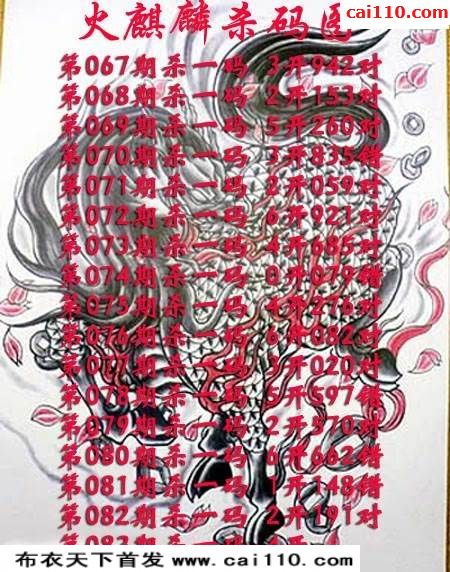 cai110.com
火麒麟杀码区
第067期杀一码 3开942对
第068期杀一码 2开153对
第069期杀一码 5开260对
第070期杀一码 3开835错
第071期杀一码 2开059对
第072期杀一码 6开921对
第073期杀一码 4开685对
第074期杀一码 0开079错
第075期杀一码 4开276对
第076期杀一码 6开082对
第077期杀一码 3开020对
第078期杀一码 5开597错
第079期杀一码 2开570对
第080期杀一码 6开662错
第081期杀一码 1开148错
第082期杀一码 2开191对
布衣天下首发 www.cai110.com